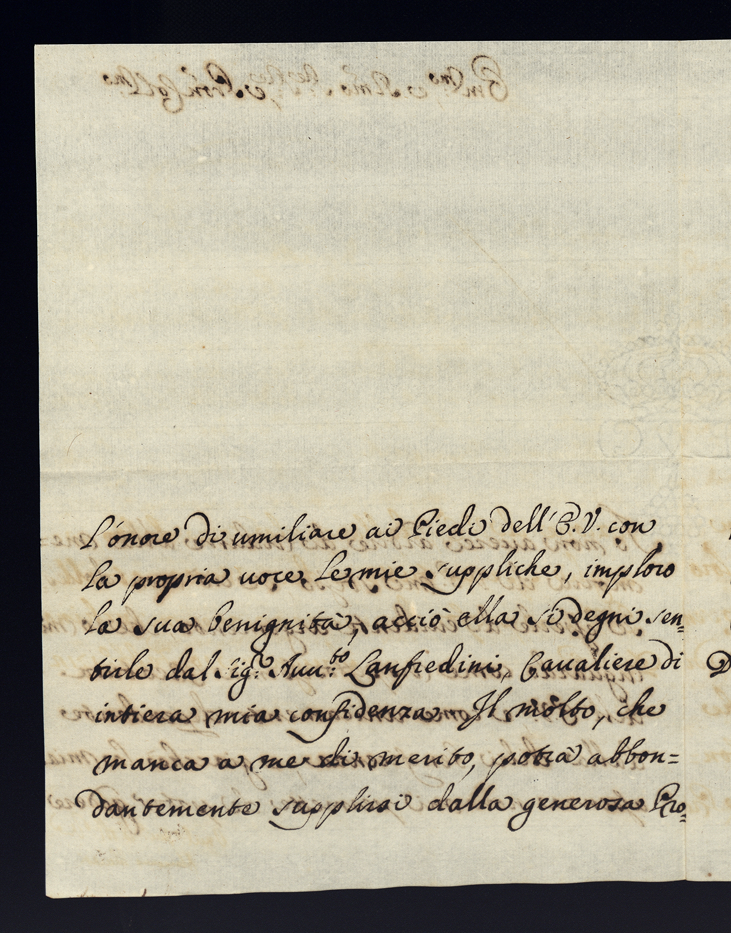 L'onore di umiliare ai Piedi dell'E.V. con
la propria voce le mie suppliche, imploro
la sua benignità, acciò ella si degni sen=
tirle dal Sig.r Avv.to Lanfredini, Cavaliere di
intiera mia confidenza. Il molto, che
manca a me di merito, potrà abbon=
dantemente supplirsi dalla generosa Pro=